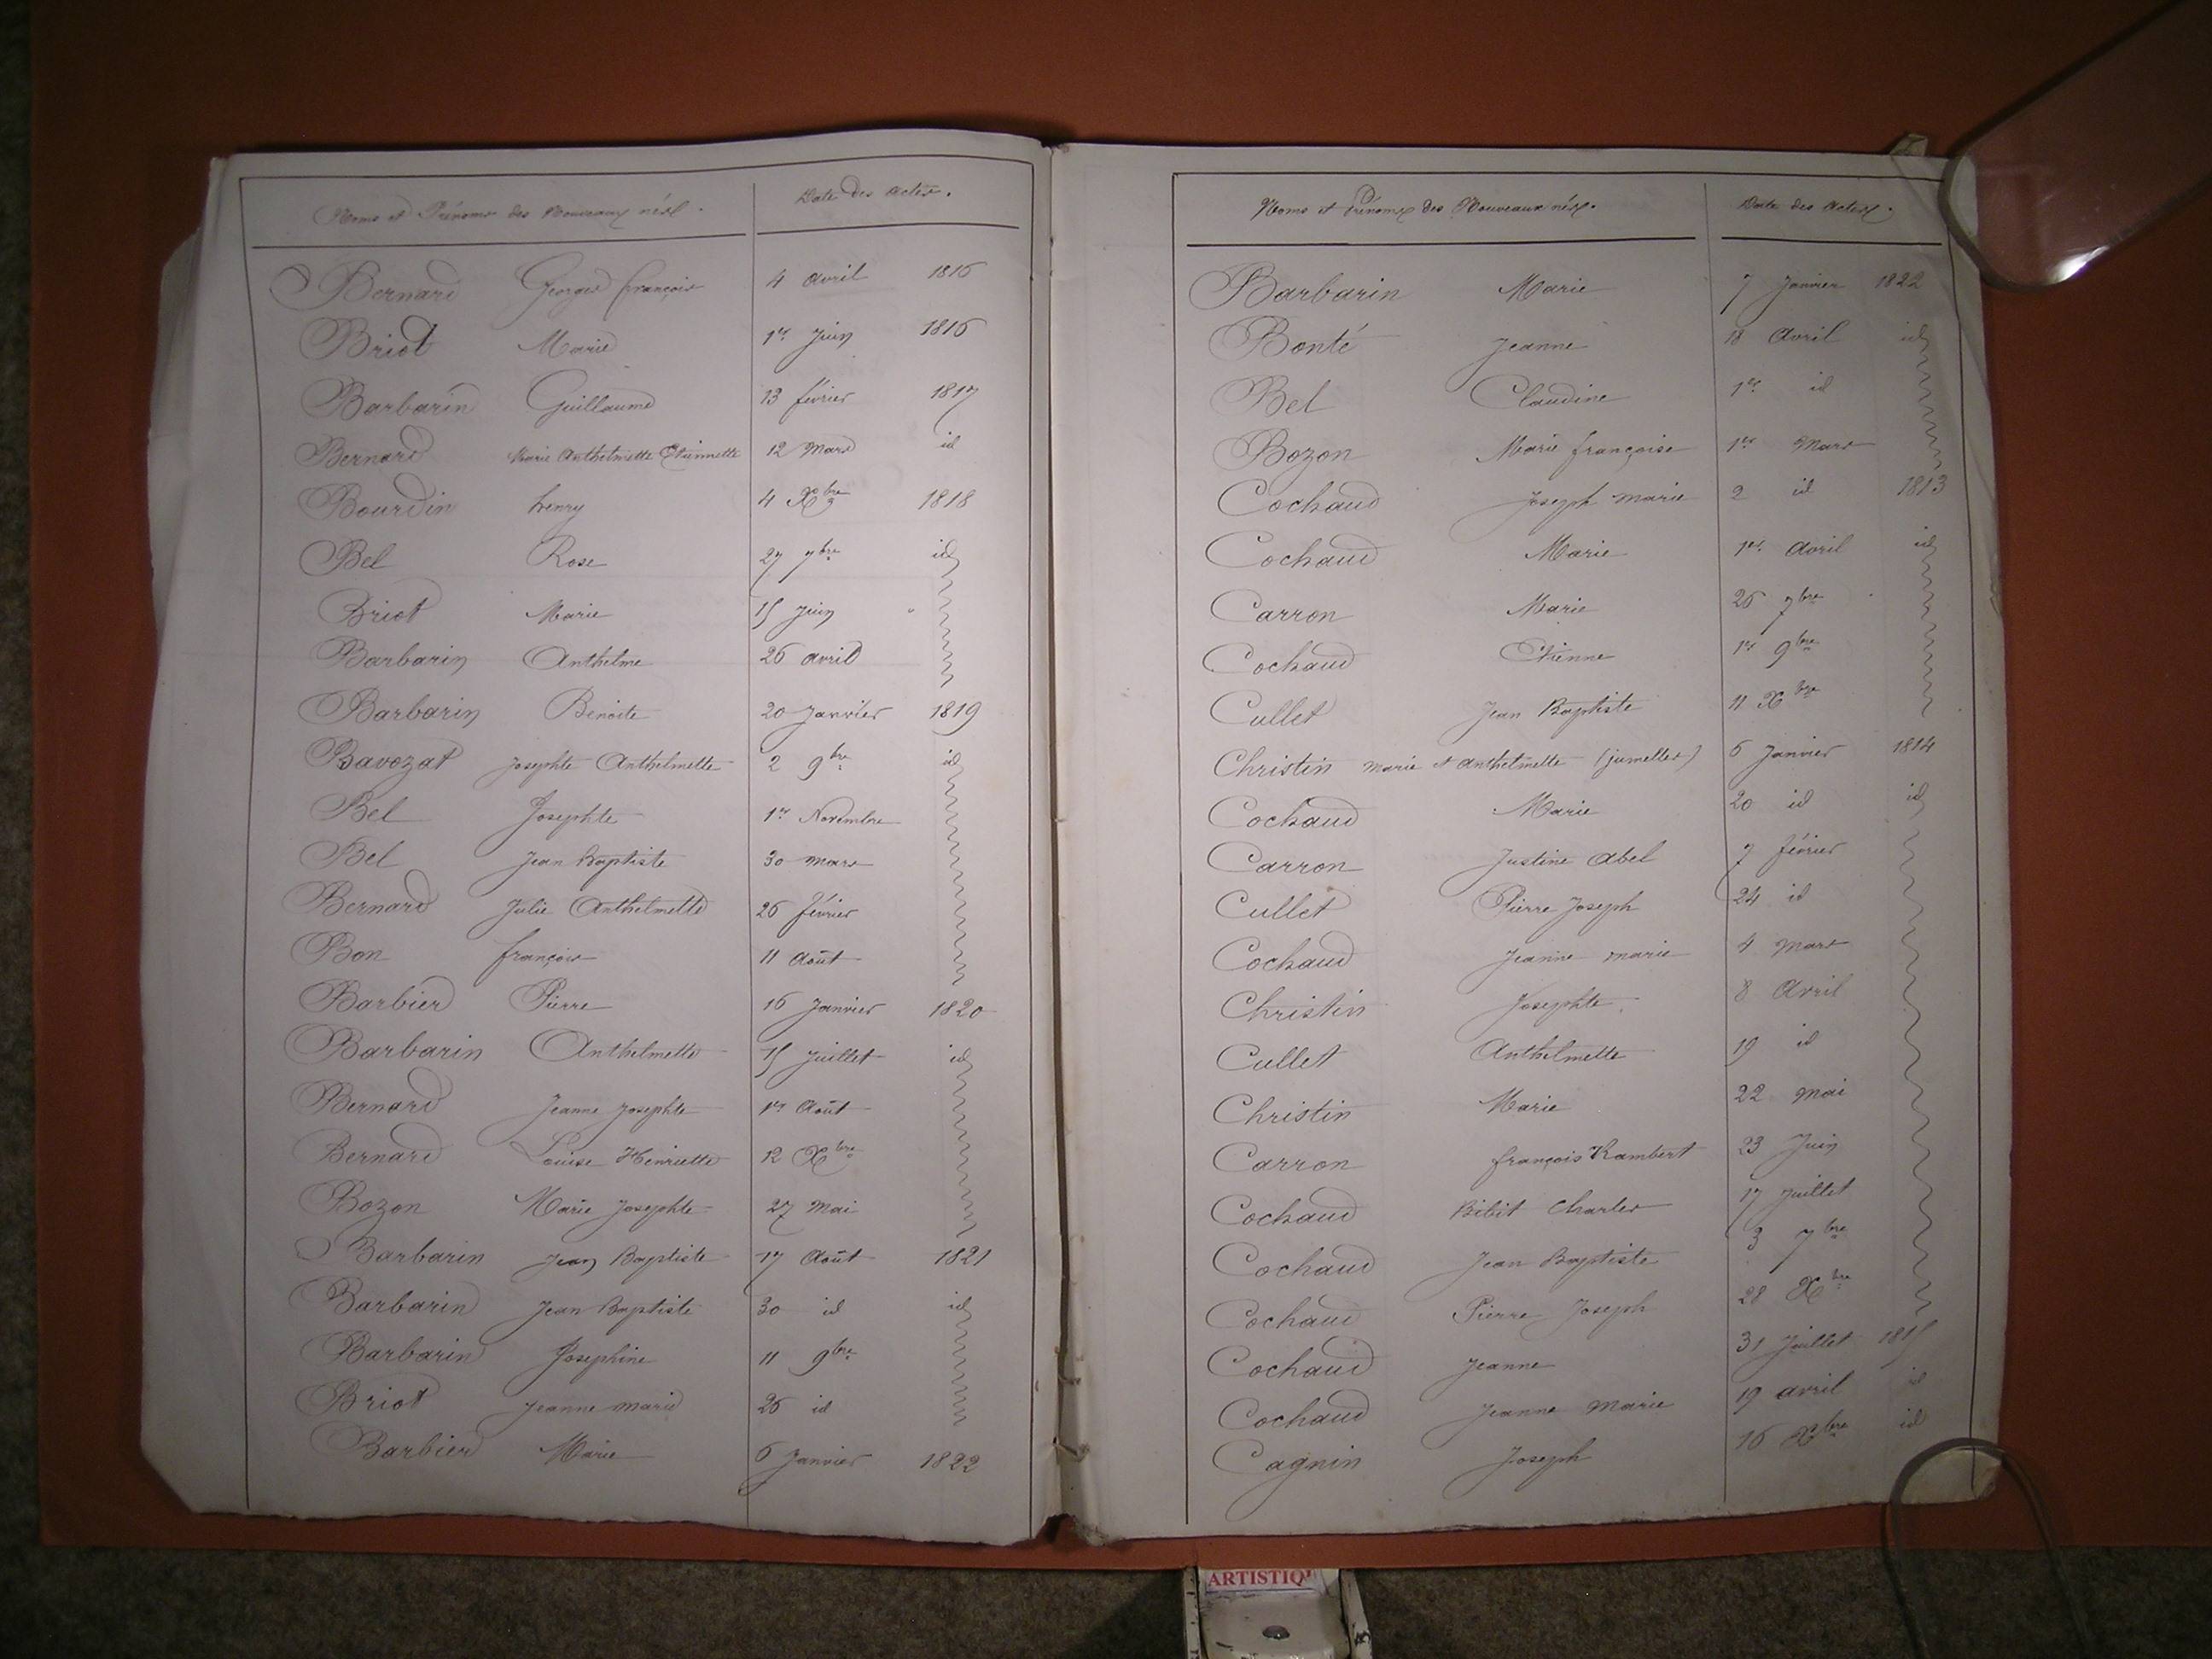 Noms et Prénoms des Nouveaux nés. Date des actes.
Bernard Georges françois 4 avril 1816
Briot Marie 1er juin 1816
Barbarin Guillaume 13 février 1817
Bernard Marie Anthelmette Etiennette 12 Mars id
Bourdin henry 4 Xbre 1818
Bel Rose 27 7bre id
Briot Marie 15 juin
Barbarin Anthelme 26 avril
Barbarin Benoite 20 Janvier 1819
Bavozat Josephte Anthelmette 2 9bre id
Bel Josephte 1er Novembre
Bel Jean Baptiste 30 mars
Bernard Julie Anthelmette 26 février
Bon françois 11 Août
Barbier Pierre 16 Janvier 1820
Barbarin Anthelmette 15 juillet id
Bernard Jeanne Josephte 1er Août
Bernard Louise Henriette 12 Xbre
Bozon Marie Josephte 27 Mai
Barbarin Jean Baptiste 17 Août 1821
Barbarin Jean Baptiste 30 id id
Barbarin Josephine 11 9bre
Briot Jeanne marie 26 id
Barbier Marie 6 Janvier 1822
Noms et Prénoms des Nouveaux nés. Date des actes.
Barbarin Marie 7 Janvier 1822
Bonté Jeanne 18 Avril id
Bel Claudine 1er id
Bozon Marie françoise 1er Mars
Cochaud Joseph marie 2 id 1813
Cochaud Marie 1er avril id
Carron Marie 26 7bre
Cochaud Etienne 1er 9bre
Cullet Jean Baptiste 11 Xbre
Christin marie et anthelmette (jumelles) 6 Janvier 1814
Cochaud Marie 20 id id
Carron Justine Abel 7 février
Cullet Pierre Joseph 24 id
Cochaud Jeanne marie 4 mars
Christin Josephte 8 Avril
Cullet Anthelmette 19 id
Christin Marie 22 mai
Carron françois Rambert 23 Juin
Cochaud Charles 17 Juillet
Cochaud Jean Baptiste 3 7bre
Cochaud Pierre Joseph 28 Xbre
Cochaud Jeanne 31 Juillet 1815
Cochaud Jeanne Marie 19 avril id
Cagnin Joseph 16 Xbre id
ARTISTIQ